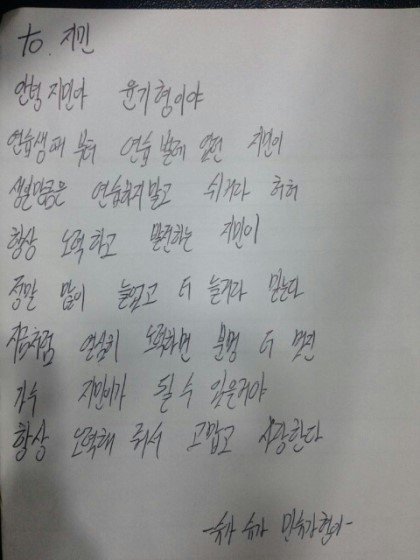 to. 지민
안녕 지민아 윤기형이야
연습생때 부터 연습 밖에 없던 지민이
생일만큼은 연습하지말고 쉬거라 허허
항상 노력하고 발전하는 지민이
정말 많이 늘었고 더 늘거라 믿는다
지금처럼 열심히 노력하면 분명 더 멋진
가수 지민이가 될 수 있을거야
항상 노력해 줘서 고맙고 사랑한다
-슈가 슈가 민슈가형이-